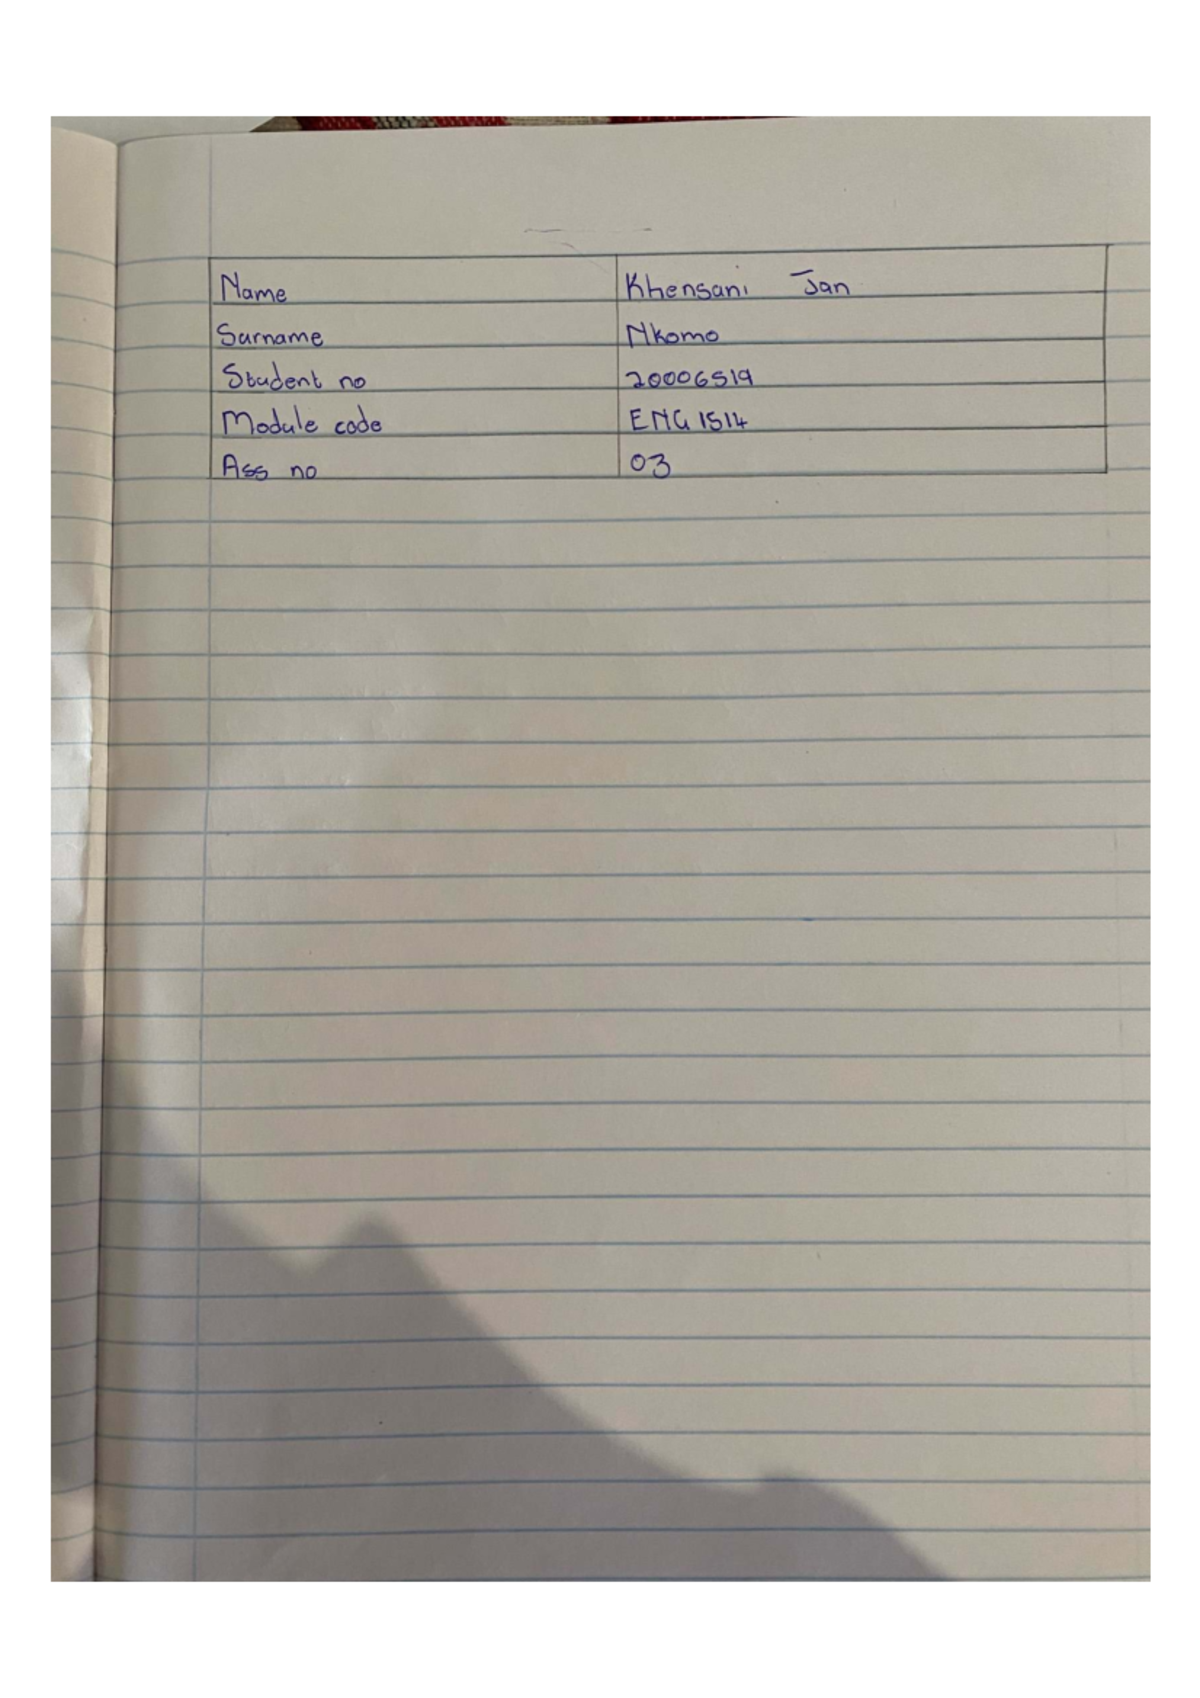 Name Khensani Jan
Surname Nkomo
Student no 20006519
Module code ENG 1514
Ass no 03